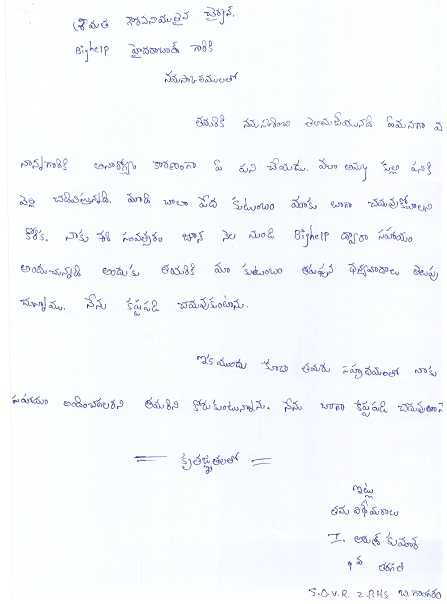 శ్రీమత గౌరవనీయులైన చైర్మన్,
Bighelp హైదరాబాద్ గారికి
నమస్కారములతో
తమరికి నమస్కరించి తెలియచేయునది ఏమనగా మ
నాన్నగారికి అనారోగ్యం కారణంగా ఏ పని చేయడు. మా అమ్మ కూలి పనికి
వెళ్లి చదివిస్తున్నది. మాది చాలా పేద కుటుంబం మాకు బాగా చదువుకోవాలని
కోరిక. నాకు ఈ సంవత్సరం జూన్ నెల నుండి Bighelp ద్వారా సహాయం
అందుచున్నది అందుకు తమరికి మా కుటుంబం తరుపున ధన్యవాదాలు తెలుపు
చున్నాము. నేను కష్టపడి చదువుకుంటాను.
ఇక ముందు కూడా తమరు సహృదయంతో నాకు
సహాయం అందించాలని తమరిని కోరుకుంటున్నాను. నేను బాగా కష్టపడి చదువుతానే
కృతజ్ఞతలతో
ఇట్లు
తమ విధేయురాలు
I. అరుణ్ కుమార్
9వ తరగతి
S.O.V.R. Z.P.H.S